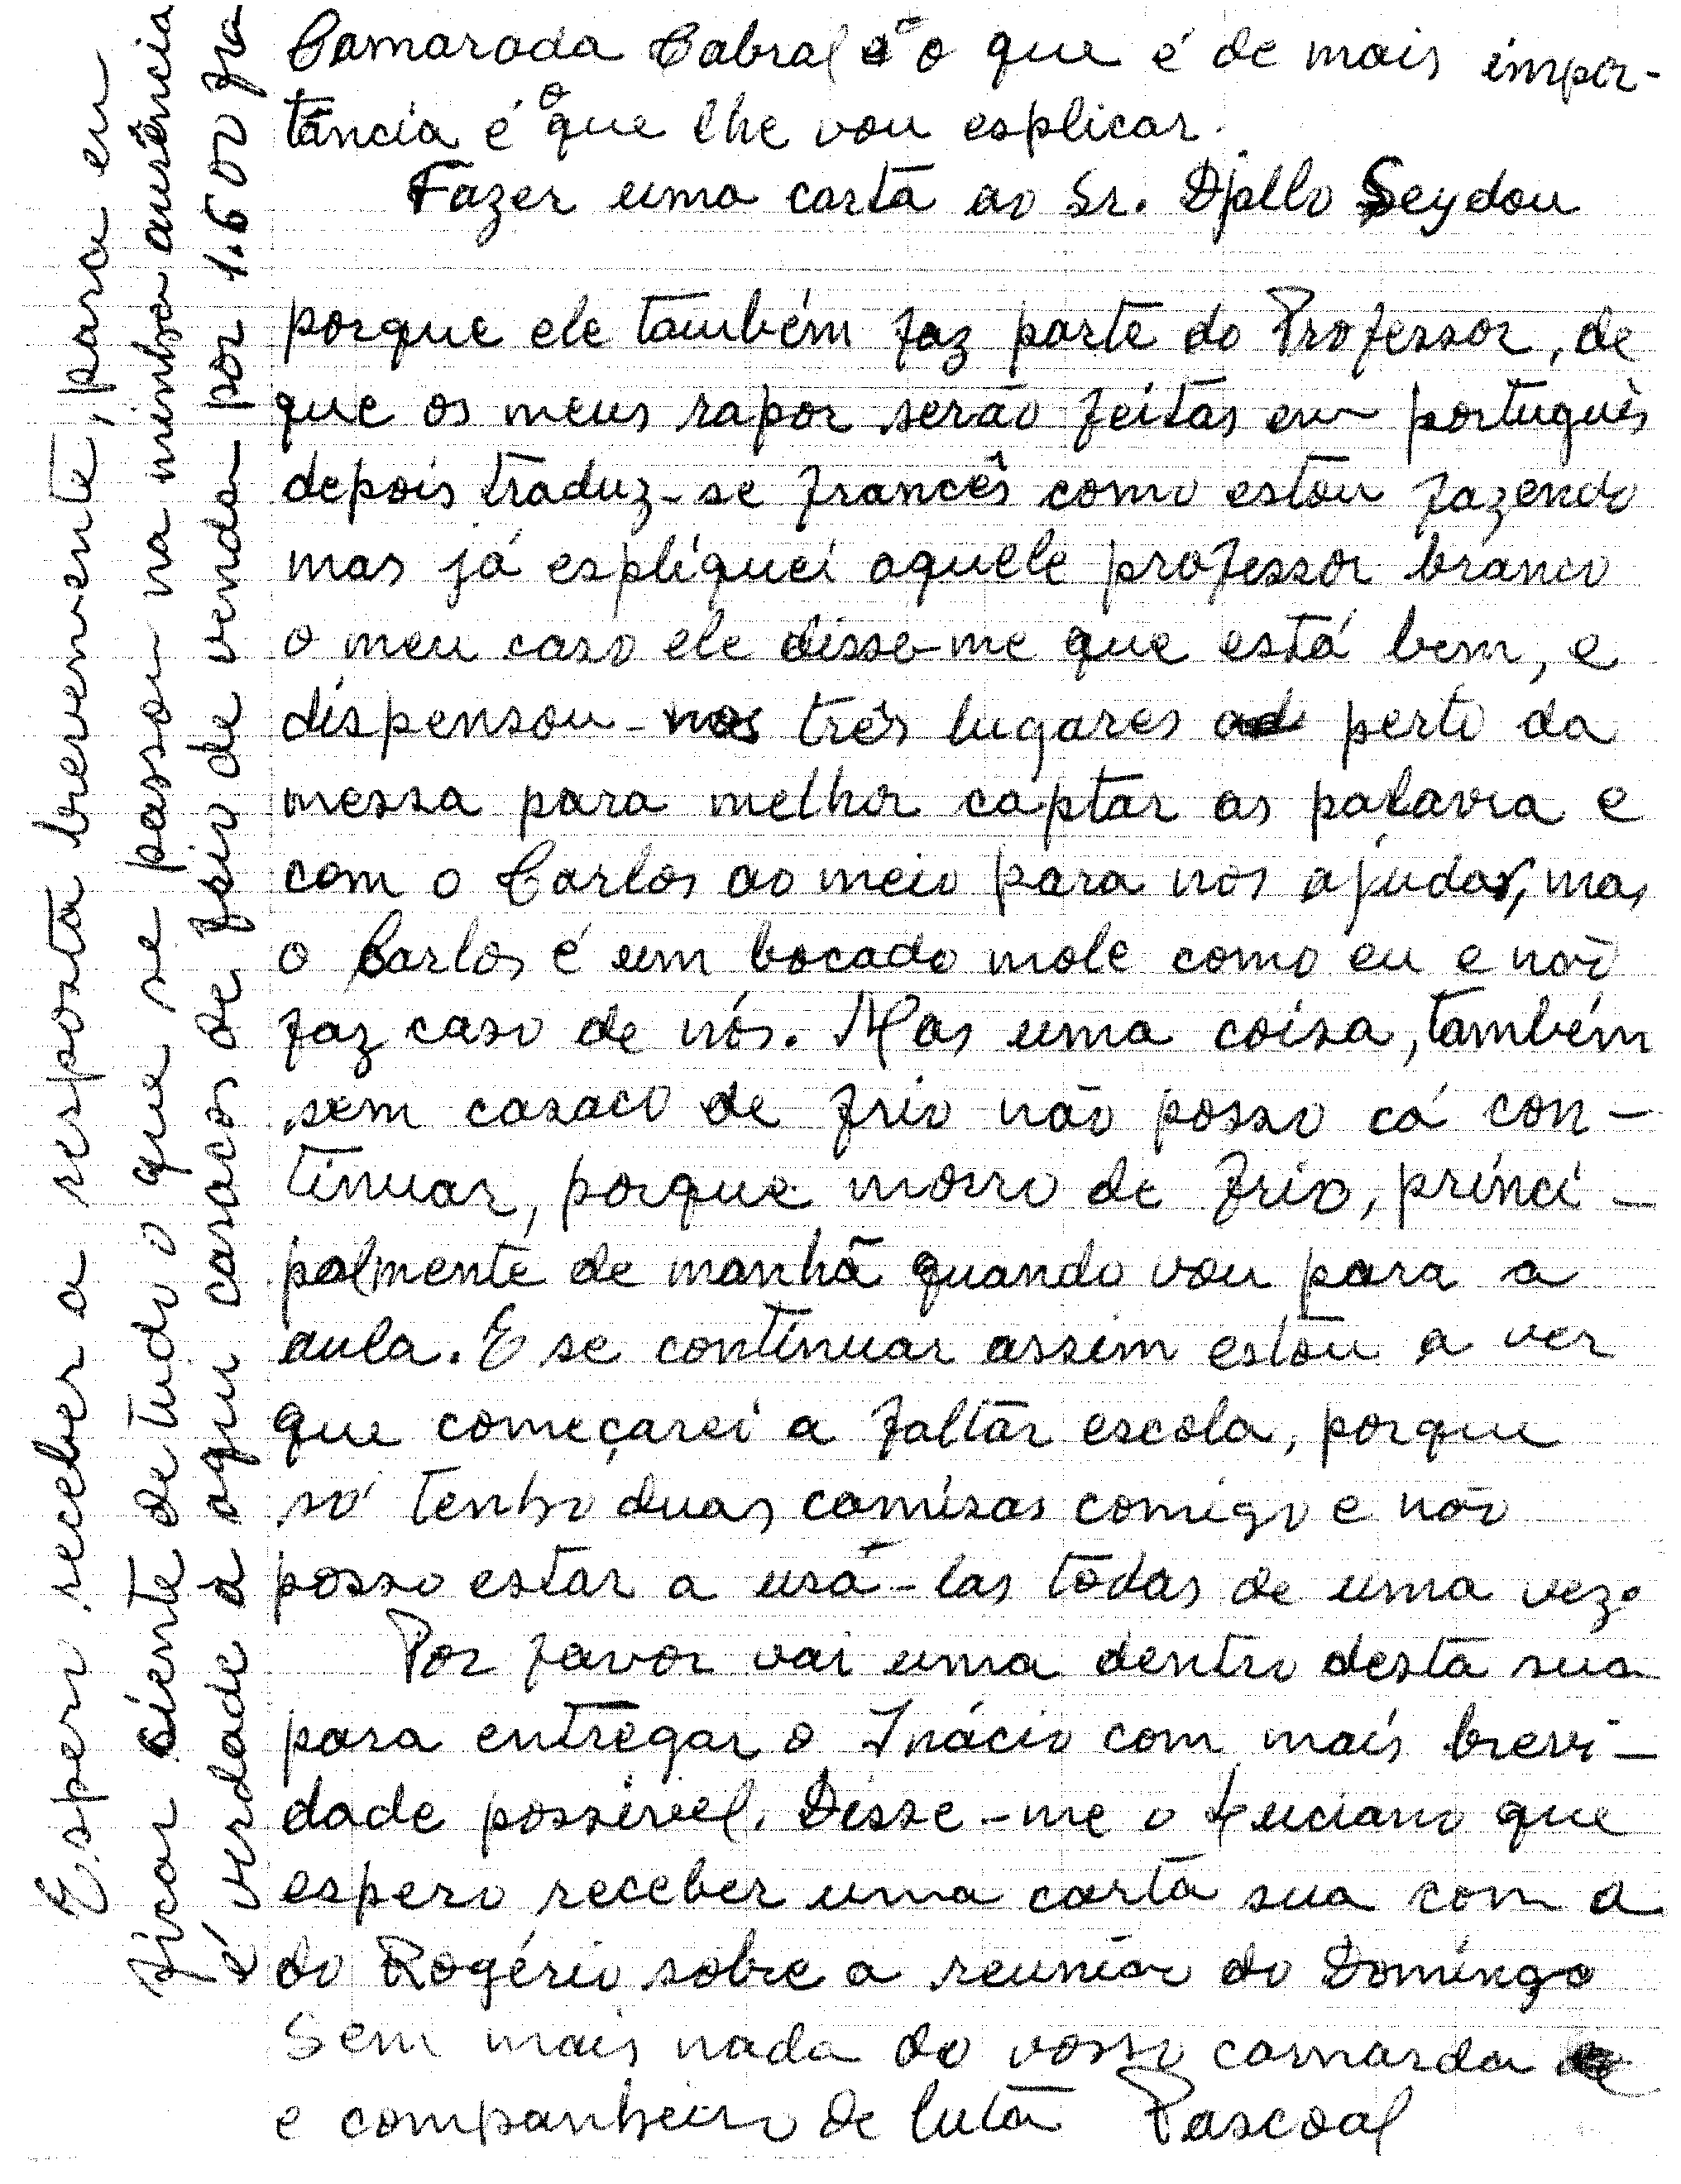 Camarada Cabral o que é de mais impor-
tância é o que lhe vou esplicar.
Fazer uma carta ao Sr. Djello Seydou
porque ele também faz parte do Professor, de
que os meus rapor serão feitas em português
depois traduz-se francês como estou fazendo
mas já espliquei aquele professor branco
o meu caso ele disse-me que está bem, e
dispensou-nos três lugares perto da
messa para melhor captar as palavra e
com o Carlos ao meio para nos ajudar, mas
o Carlos é um bocado mole como eu e não
faz caso de nós. Mas uma coisa, também
sem casaco de frio não posso cá con-
tinuar, porque morro de frio, princi-
palmente de manhã quando vou para a
aula. E se continuar assim estou a ver
que começarei a faltar escola, porque
só tenho duas camisas comigo e não
posso estar a usá-las todas de uma vez.
Por favor vai uma dentro desta sua
para entregar o Inácio com mais brevi-
dade possível. Disse-me o Luciano que
espero receber uma carta sua com a
do Rogério sobre a reunião do Domingo
Sem mais nada do vosso camarda
e companheiro de luta Pascoal
Espero receber a resposta brevemente, para eu
ficar ciente de tudo o que se passou na minha ausência
é verdade a aqui casacos de frio de venda por 1.600 fra